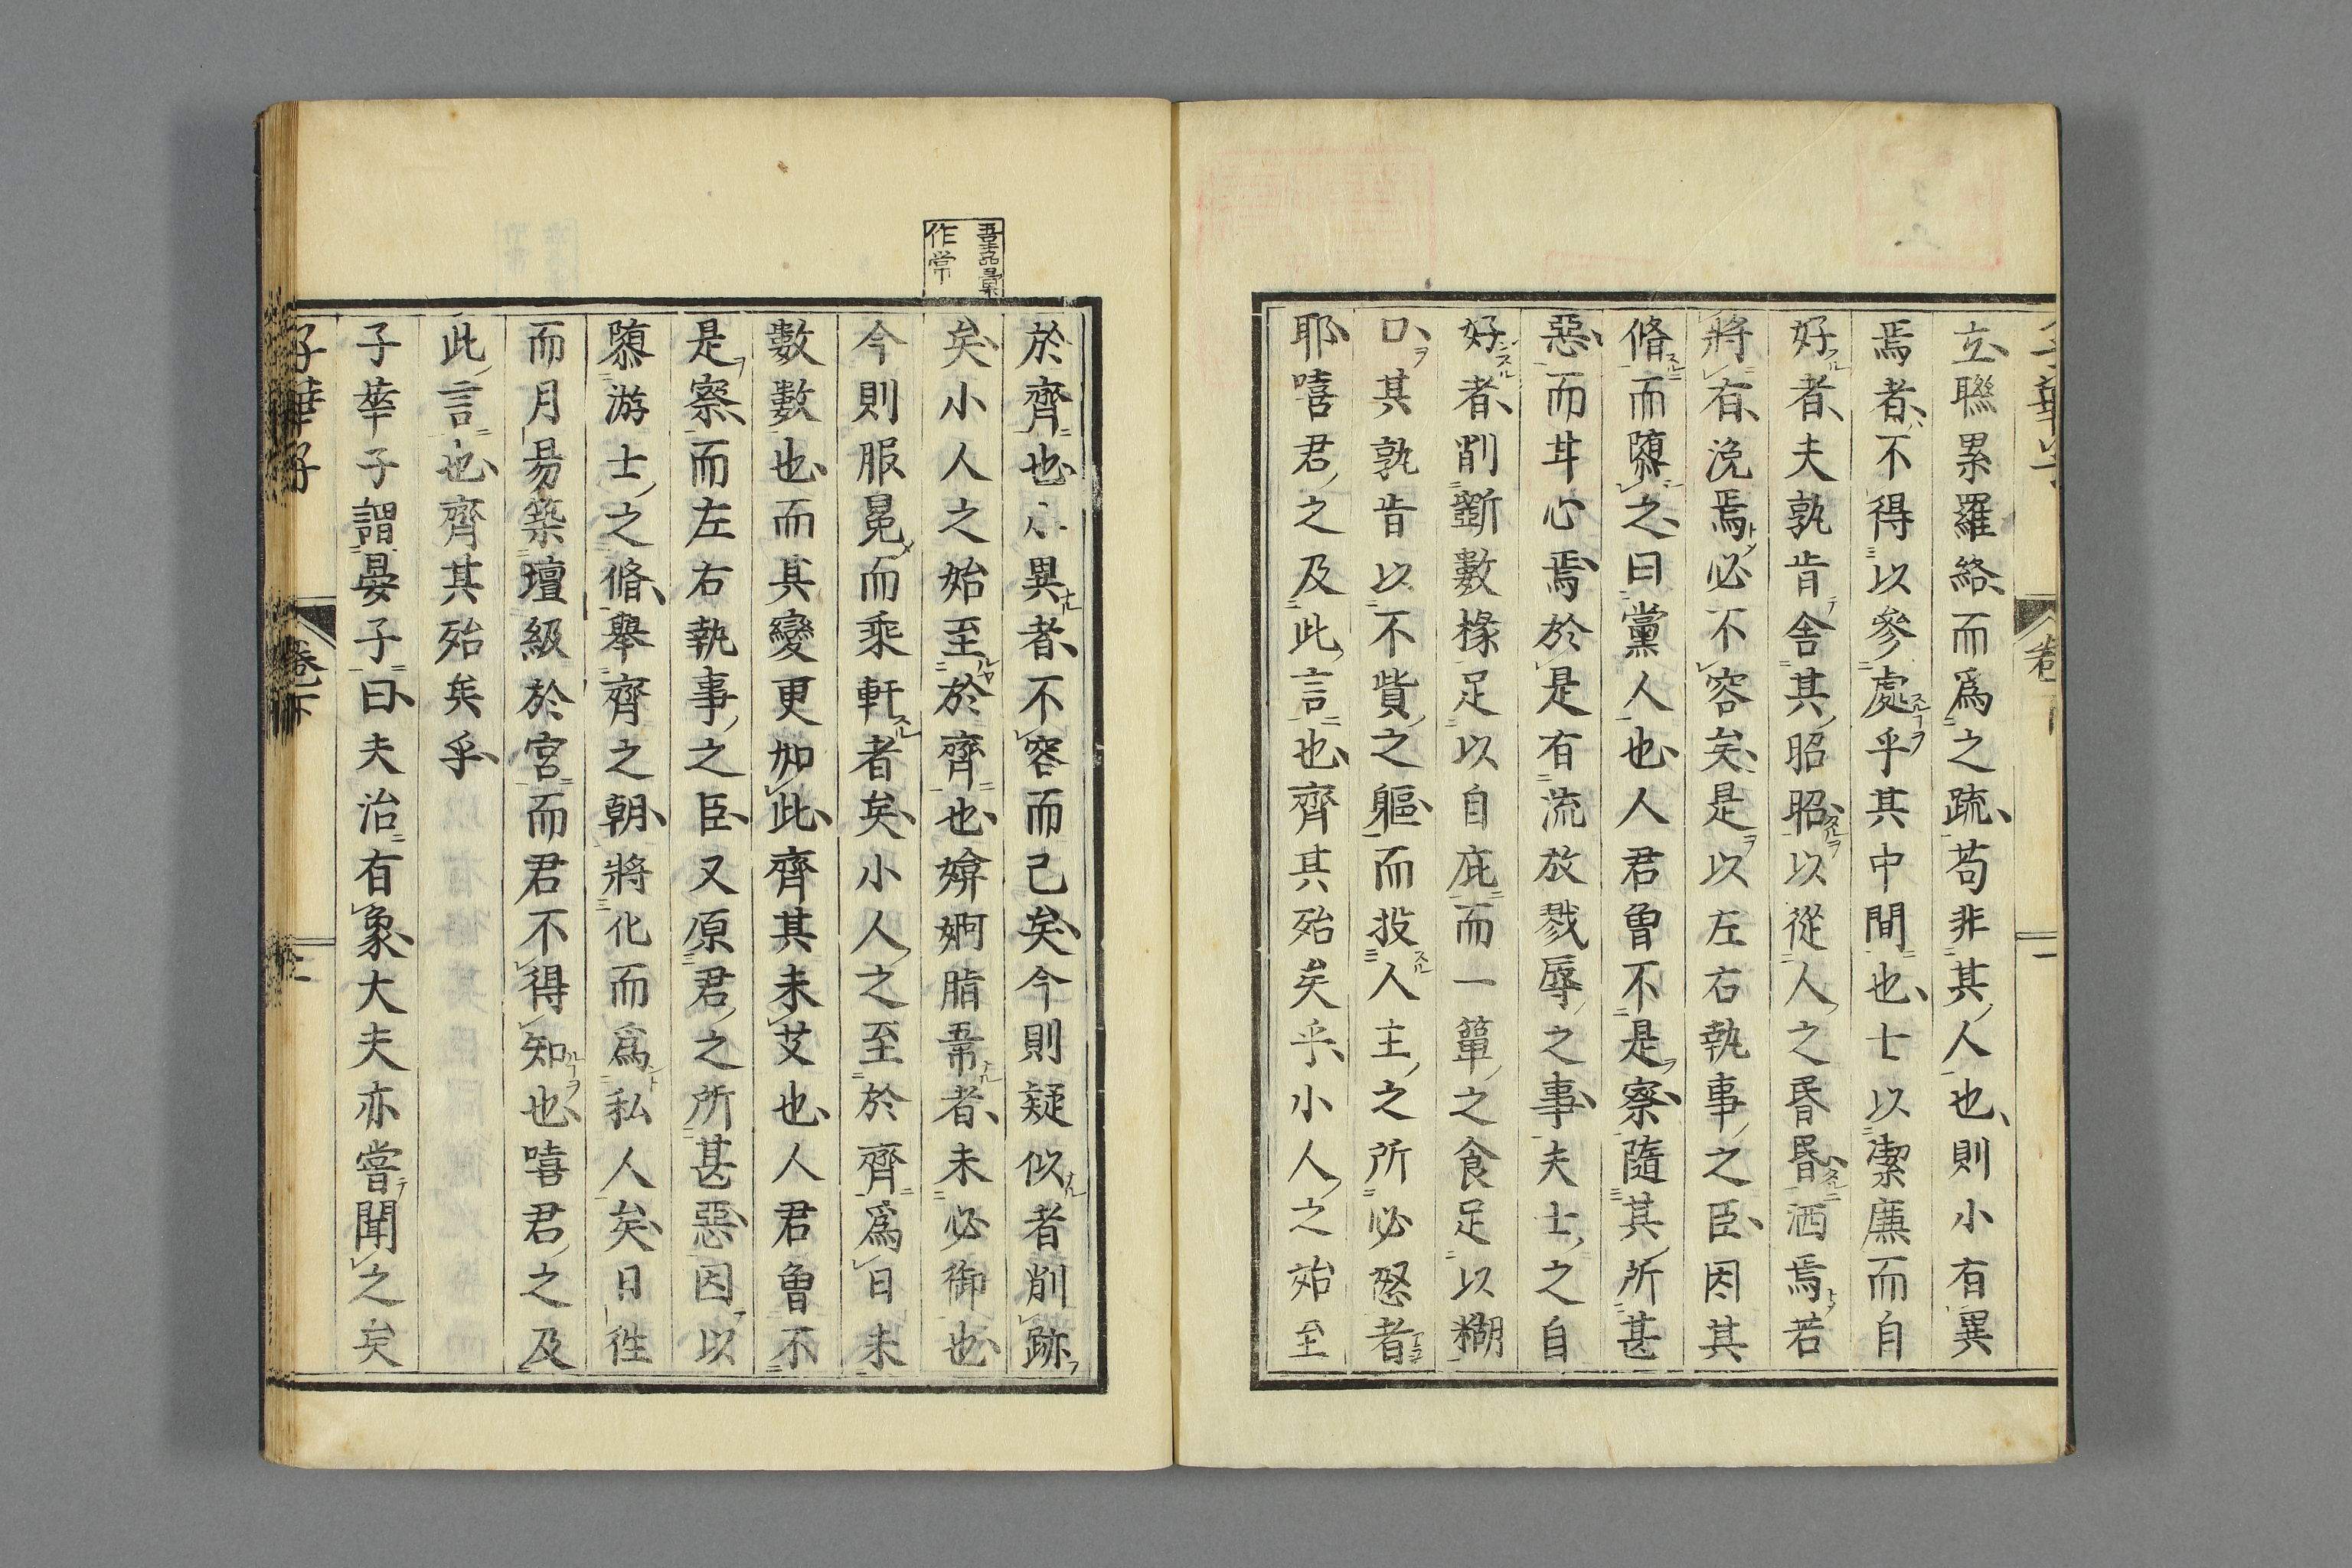 立聯累羅絡而爲之疏苟非其人也則小有異
焉者不得以參處乎其中間也士以潔廉而自
好者夫孰肯舍其昭昭以從人之昏昏洒焉若
將有浼焉必不容矣是以左右執事之臣因其
脩而隳之曰黨人也人君曾不是察隨其所甚
惡而甘心焉於是有流放戮辱之事夫士之自
好者削斵數椽足以自庇而一簞之食足以糊
口其孰肯以不貲之軀而投人主之所必怒者
耶嘻君之及此言也齊其殆矣乎小人之始至
吾品彙
作常
於齊也小異者不容而已矣今則疑似者削跡
矣小人之始至於齊也媕婀脂韋者未必御也
今則服冕而乘軒者矣小人之至於齊爲日未
數數也而其變更如此齊其未艾也人君曾不
是察而左右執事之臣又原君之所甚惡因以
隳游士之脩舉齊之朝將化而爲私人矣日徃
而月易築壇級於宮而君不得知也嘻君之及
此言也齊其殆矣乎
子華子謂晏子曰夫治有象大夫亦嘗聞之矣
子華子
卷下